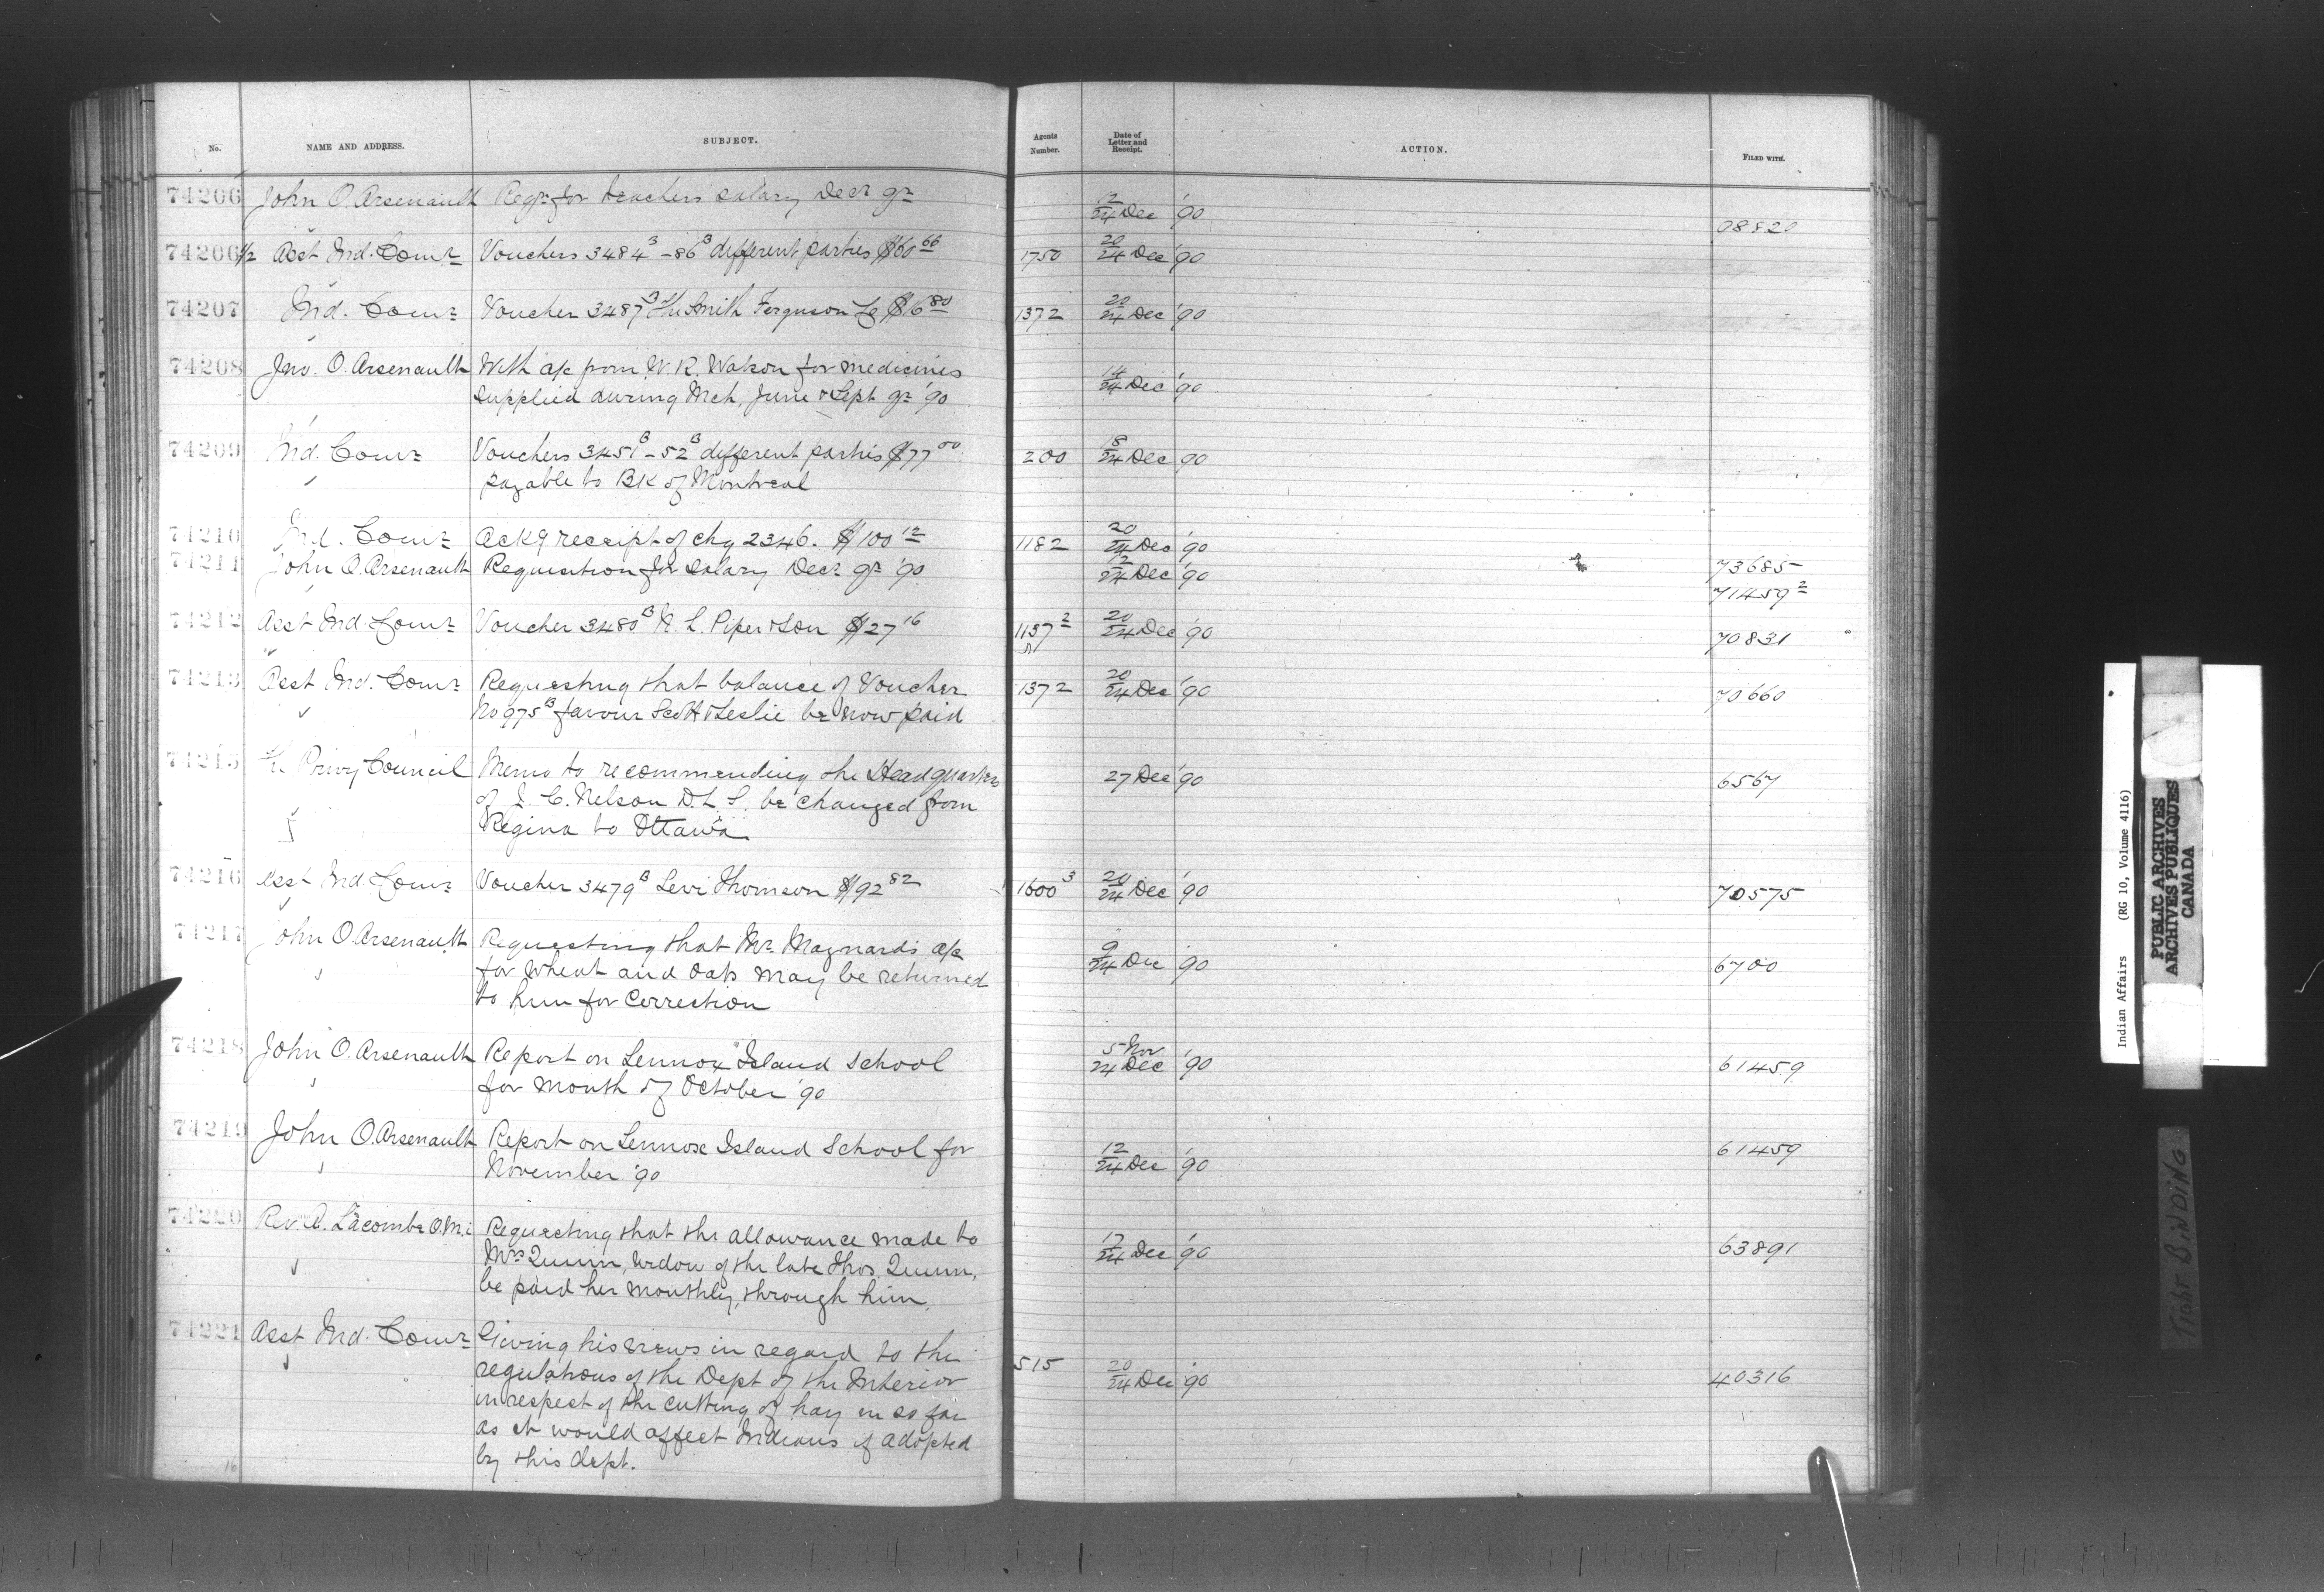 No. NAME AND ADDRESS. SUBJECT. Agents Number. Date of Letter and Receipt. ACTION. FILED WITH.
74206 John O. Arsenault Reqn for teachers salary Decr qr 12/24 Dec '90
74206 1/2 Asst Ind. Comr Vouchers 3484B - 86B different parties $60 66 1750 20/24 Dec '90
74207 Ind. Comr Voucher 3487B The Smith Ferguson Co $6 80 1372 20/24 Dec '90
74208 Jno. O. Arsenault With a/c from W. R. Watson for medicines 14/24 Dec '90
supplied during Mch, June & Sept qr '90
74209 Ind. Comr Vouchers 3451B - 52B different parties $77 00 200 18/24 Dec '90
payable to BK of Montreal
74210 Ind. Comr Ackg receipt of chq 2346. $100 12 1182 20/24 Dec '90 73685
74211 John O. Arsenault Requisition for salary Decr qr '90 12/24 Dec '90 71459 2
74212 Asst Ind. Comr Voucher 3480B N. L. Piper & Son $27 16 1137 2 20/24 Dec '90 70831
74213 Asst Ind. Comr Requesting that balance of Voucher 1372 20/24 Dec '90 70660
No 975B favour Scott & Leslie be now paid
74215 Privy Council Memo to recommending the Headquarters 27 Dec '90 6567
of J. C. Nelson D. L. S. be changed from
Regina to Ottawa
74216 Asst Ind. Comr Voucher 3479B Levi Thomson $192 82 1600 3 20/24 Dec '90 70575
74217 John O. Arsenault Requesting that Mr Maynards a/c 9/24 Dec '90 6700
for wheat and oats may be returned
to him for correction
74218 John O. Arsenault Report on Lennox Island School 5 Nov/24 Dec '90 61459
for month of October '90
74219 John O. Arsenault Report on Lennox Island School for 12/24 Dec '90 61459
November '90
74220 Rev. A. Lacombe O.M.I. Requesting that the allowance made to 17/24 Dec '90 63891
Mrs Quinn, widow of the late Thos. Quinn,
be paid her monthly, through him.
74221 Asst Ind. Comr Giving his views in regard to the 515 20/24 Dec '90 40316
regulations of the Dept of the Interior
in respect of the cutting of hay in so far
as it would affect Indians if adopted
by this dept.
16
Indian Affairs (RG 10, Volume 4116)
PUBLIC ARCHIVES
ARCHIVES PUBLIQUES
CANADA
TIGHT BINDING